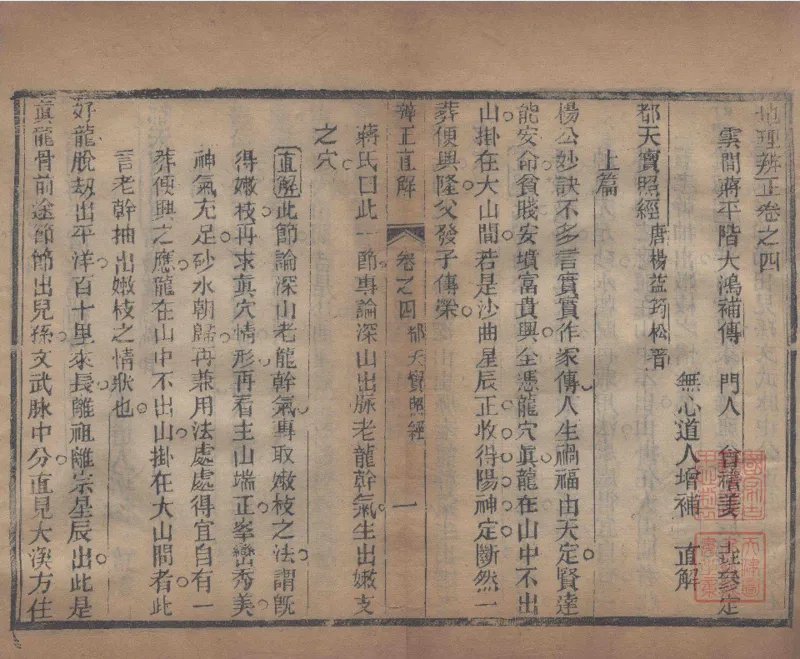 地理辨正卷之四
雲間蔣平階大鴻補傳 門人 會稽姜垚參定
無心道人增補 直解
都天寶照經 唐楊益筠松著
上篇
楊公妙訣不多言實實作家傳人生禍福由天定賢達
能安命貧賤安墳富貴興全憑龍穴眞龍在山中不出
山掛在大山間若是沙曲星辰正收得陽神定斷然一
葬便興隆父發子傳榮
辨正直解 卷之四 都天寶照經 一
蔣氏曰此一節專論深山出脉老龍幹氣生出嫩支
之穴
直解此節論深山老龍幹氣專取嫩枝之法謂旣
得嫩枝再求眞穴情形再看主山端正峯巒秀美
神氣充足砂水朝歸再兼用法處處得宜自有一
葬便興之應龍在山中不出山掛在大山間者此
言老幹抽出嫩枝之情狀也
好龍脫刼出平洋百十里來長離祖離宗星辰出此是
眞龍骨前途節節出兒孫文武脉中分直見大溪方住